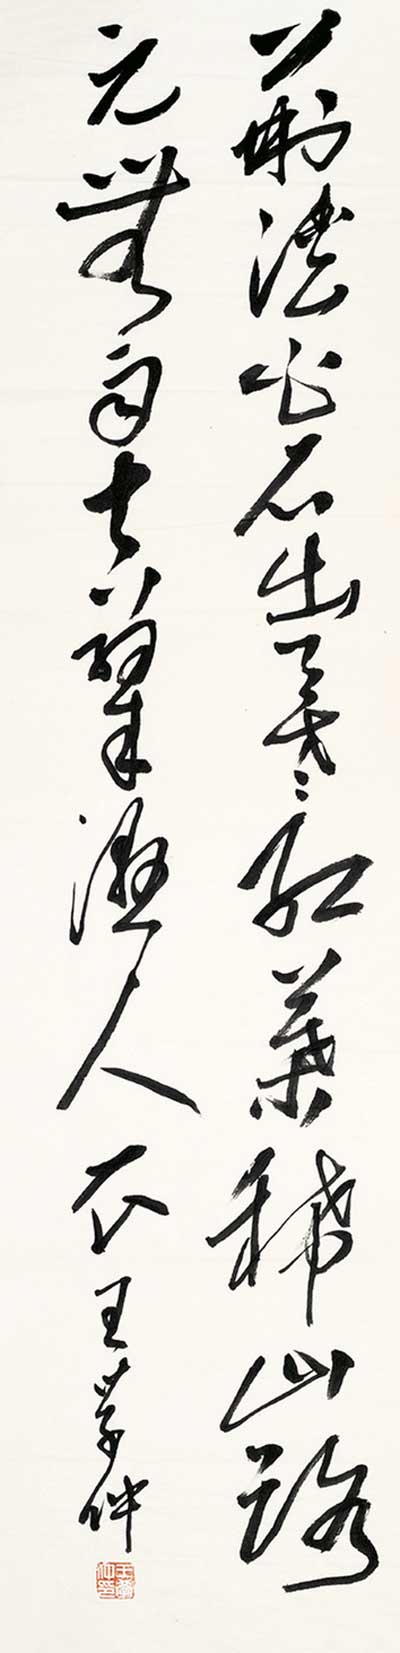 荆溪白石出天寒紅葉稀山路
元無雨空翠濕人衣王學仲